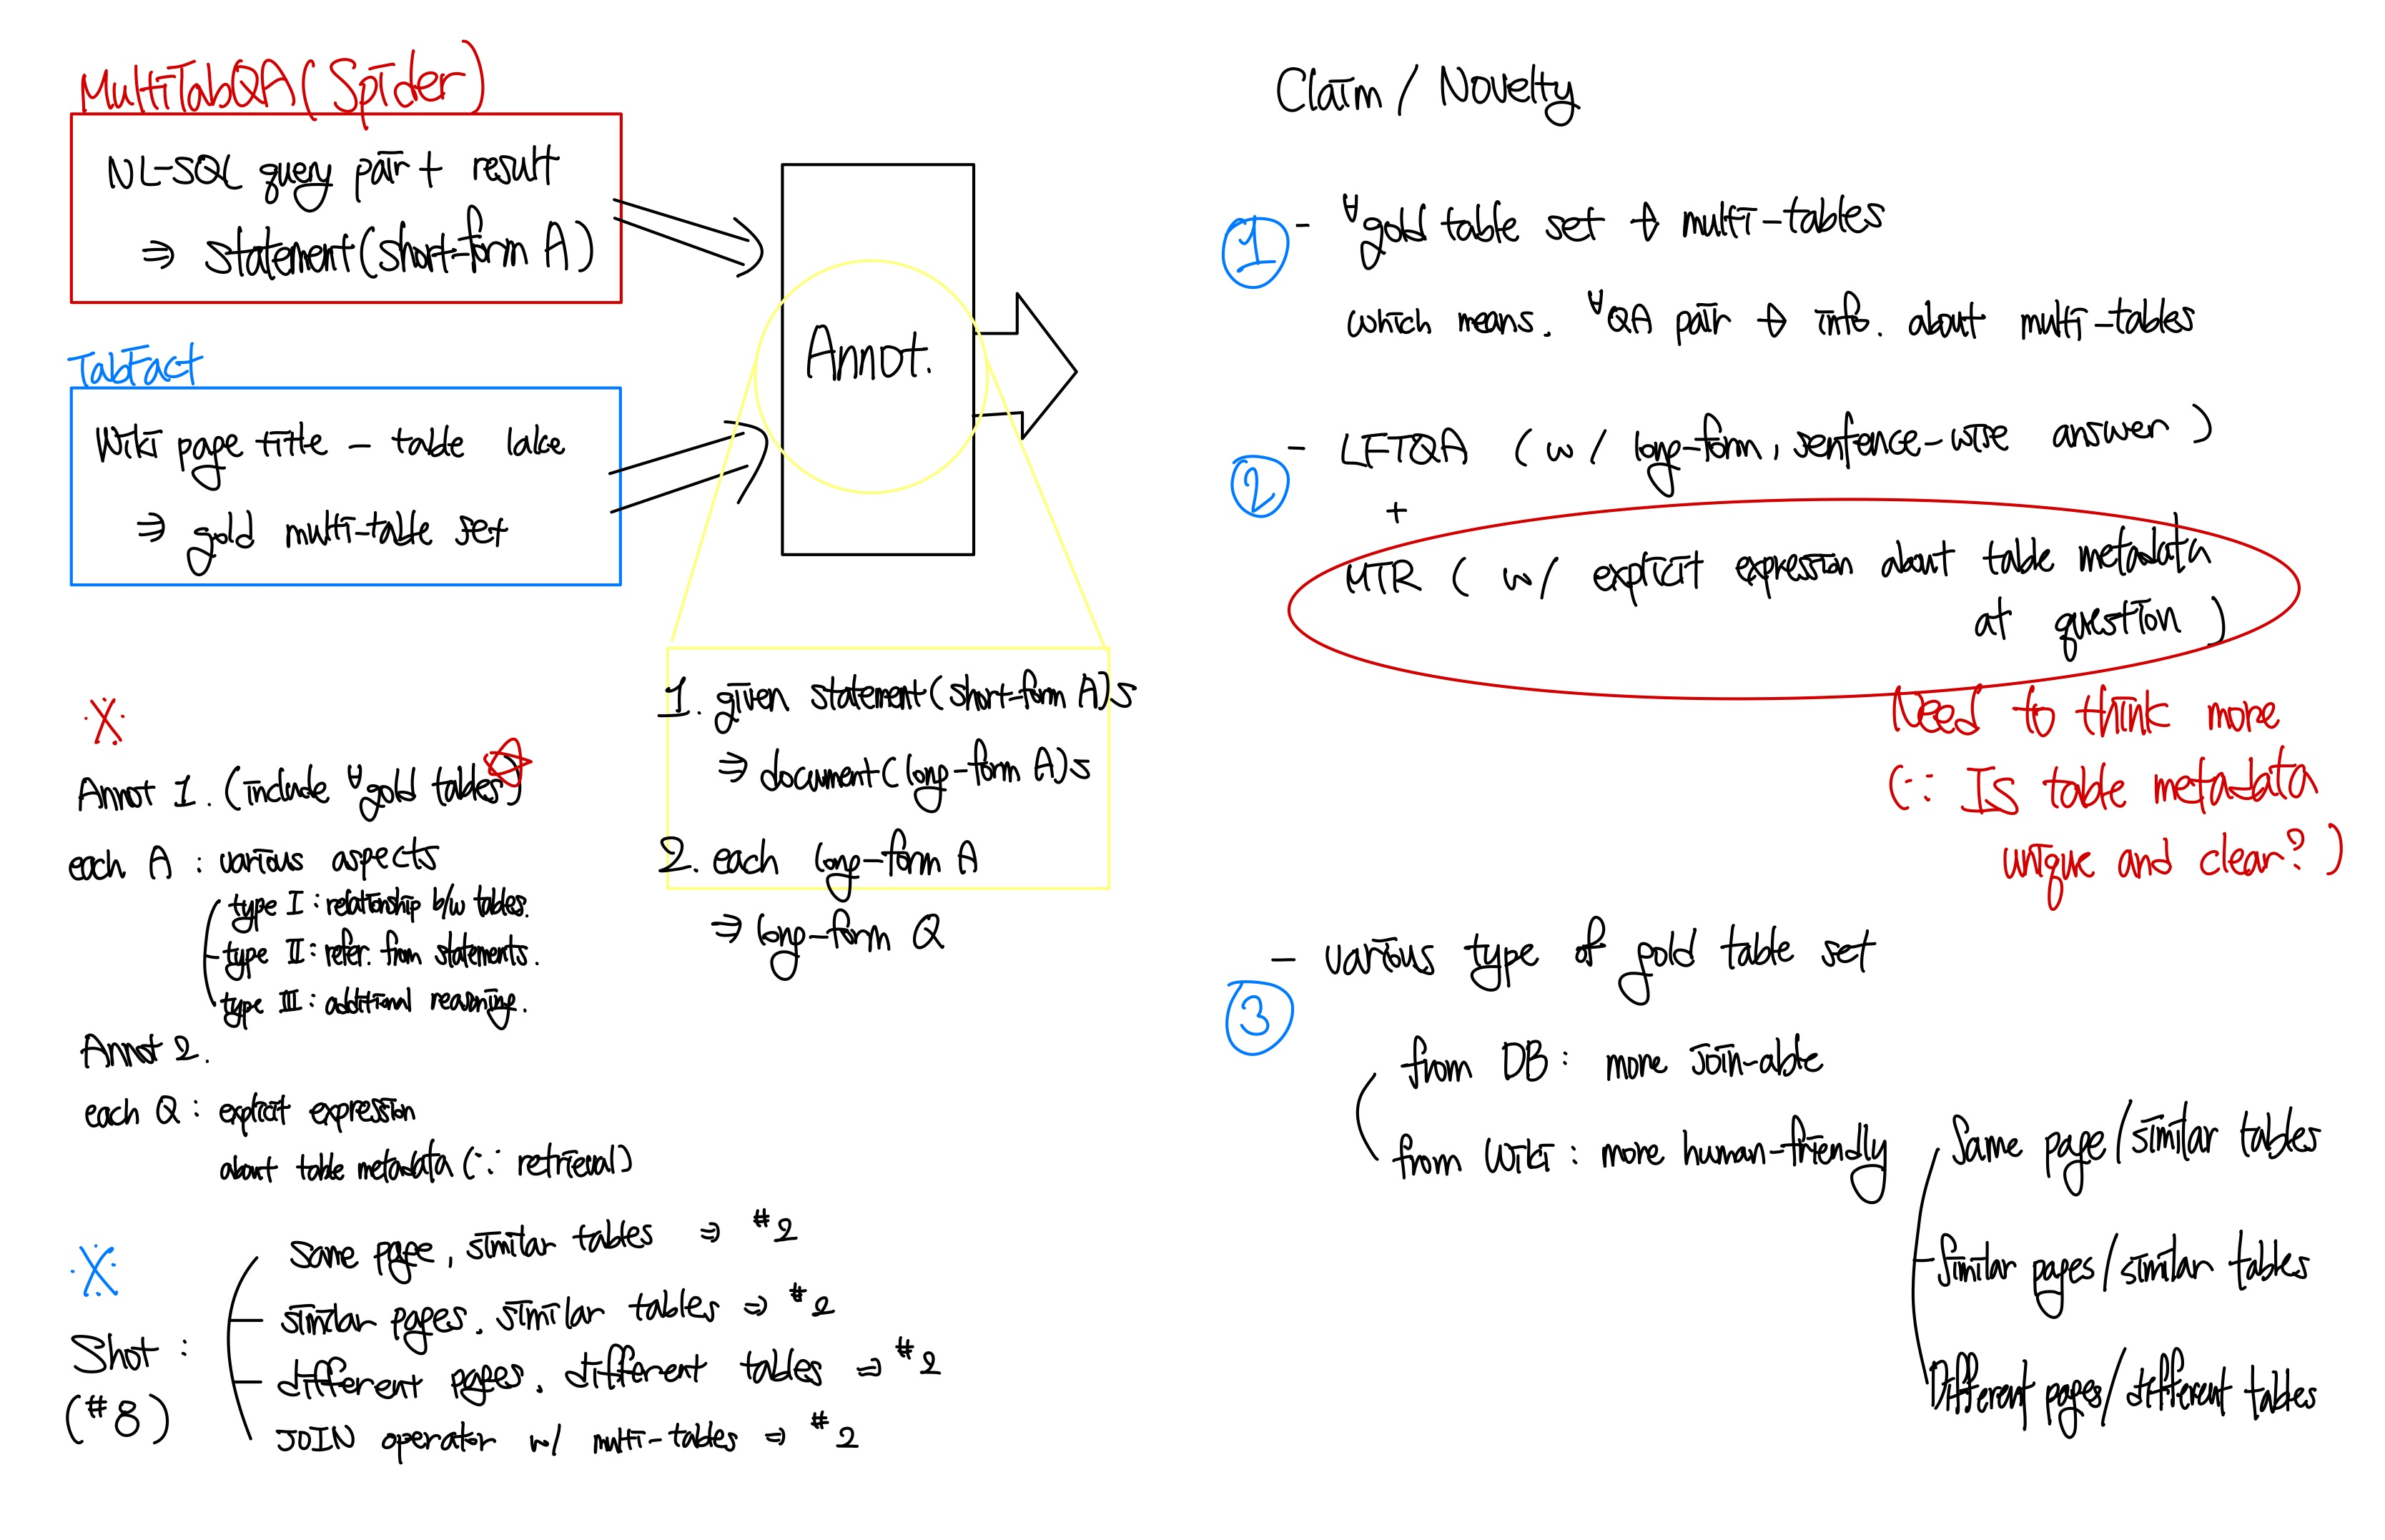 MultiTabQA(Spider)
NL-SQL query pair + result
⇒ statement(short-form A)
TabFact
Wiki page title - table lake
⇒ gold multi-table set
Annot.
1. given statement(short-form A)s
⇒ document(long-form A)s
2. each long-form A
⇒ long-form Q
※
Annot 1. (include ∀gold tables)
each A : various aspects
type I : relationship b/w tables.
type II : refer. from statements.
type III : additional reasoning.
Annot 2.
each Q : explicit expression
about table metadata (∵ retrieval)
※
Shot :
(#8)
Same page, similar tables ⇒ #2
similar pages, similar tables ⇒ #2
different pages, different tables ⇒ #2
JOIN operator w/ multi-tables ⇒ #2
Claim / Novelty
① - ∀gold table set → multi-tables
which means. ∀QA pair → info. about multi-tables
② - LFTQA (w/ long-form, sentence-wise answer)
+
MTR (w/ explicit expression about table metadata
at question)
Need to think more
(∵ Is table metadata
unique and clear?)
③ - various type of gold table set
from DB : more join-able
from Wiki : more human-friendly
Same page/similar tables
Similar pages/similar tables
Different pages/different tables